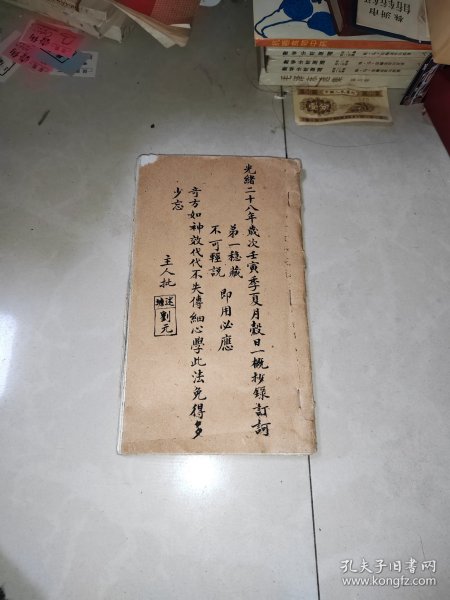 光緒二十八年歲次壬寅季夏月穀日一概抄錄訂訶
第一穩藏
不可輕説
即用必應
奇方如神效代代不失傳細心學此法免得多
少忘
主人批
劉元
孔夫子旧书网
www.kongfz.com